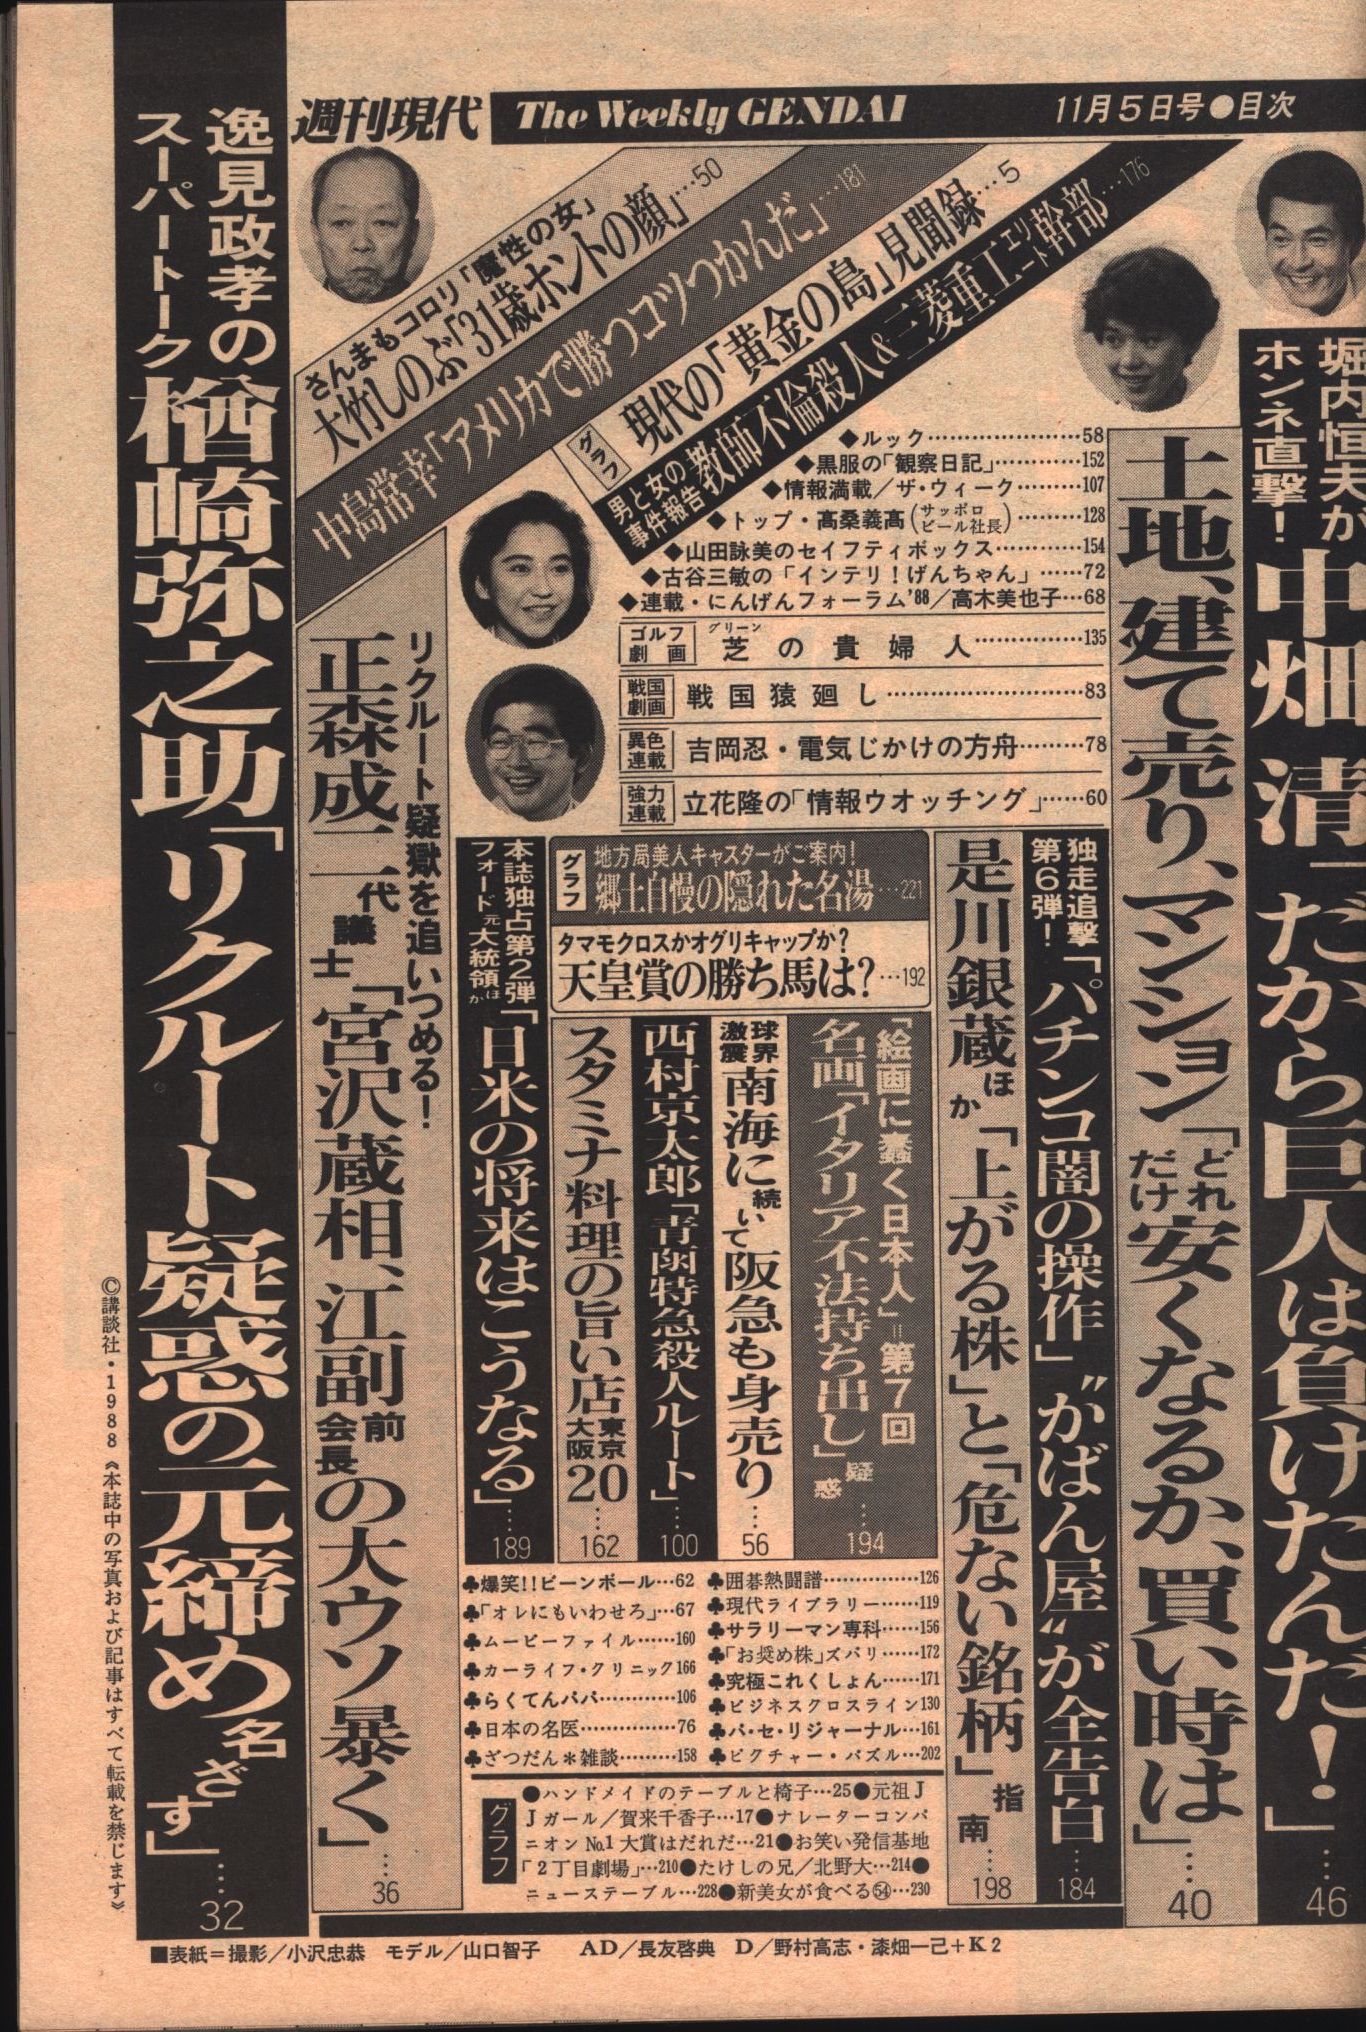 週刊現代
The Weekly GENDAI
11月5日号●目次
堀内恒夫が
ホンネ直撃！
中畑 清「だから巨人は負けたんだ！」…46
土地、建て売り、マンション「どれだけ安くなるか、買い時は」…40
さんまもコロリ「魔性の女」
大竹しのぶ「31歳ホントの顔」…50
中島常幸「アメリカで勝つコツつかんだ」…181
グラフ
現代の「黄金の島」見聞録…5
男と女の
事件報告
教師不倫殺人＆三菱重工エリート幹部…176
◆ルック…58
◆黒服の「観察日記」…152
◆情報満載／ザ・ウィーク…107
◆トップ・高桑義高（サッポロビール社長）…128
◆山田詠美のセイフティボックス…154
◆古谷三敏の「インテリ！げんちゃん」…72
◆連載・にんげんフォーラム'88／高木美也子…68
ゴルフ劇画
芝（グリーン）の貴婦人…135
戦国劇画
戦国猿廻し…83
異色連載
吉岡忍・電気じかけの方舟…78
強力連載
立花隆の「情報ウオッチング」…60
独走追撃第6弾！
「パチンコ闇の操作」“かばん屋”が全告白…184
是川銀蔵ほか「上がる株」と「危ない銘柄」指南…198
グラフ
地方局美人キャスターがご案内！
郷土自慢の隠れた名湯…221
タマモクロスかオグリキャップか？
天皇賞の勝ち馬は？…192
「絵画に蠢く日本人」＝第7回
名画「イタリア不法持ち出し」疑惑…194
球界激震
南海に続いて阪急も身売り…56
西村京太郎「青函特急殺人ルート」…100
スタミナ料理の旨い店東京大阪20…162
本誌独占第2弾
フォード元大統領ほかが
「日米の将来はこうなる」…189
リクルート疑獄を追いつめる！
正森成二代議士「宮沢蔵相、江副前会長の大ウソ暴く」…36
逸見政孝の
スーパートーク
楢崎弥之助「リクルート疑惑の元締め名ざす」…32
♣囲碁熱闘譜…126
♣現代ライブラリー…119
♣サラリーマン専科…156
♣「お奨め株」ズバリ…172
♣究極これくしょん…171
♣ビジネスクロスライン130
♣パ・セ・リジャーナル…161
♣ピクチャー・パズル…202
♣爆笑!!ビーンボール…62
♣「オレにもいわせろ」…67
♣ムービーファイル…160
♣カーライフ・クリニック166
♣らくてんパパ…106
♣日本の名医…76
♣ざつだん＊雑談…158
グラフ
●ハンドメイドのテーブルと椅子…25●元祖J
Jガール／賀来千香子…17●ナレーターコンパ
ニオンNo.1大賞はだれだ…21●お笑い発信基地
「2丁目劇場」…210●たけしの兄／北野大…214●
ニューステーブル…228●新美女が食べる54…230
©講談社・1988《本誌中の写真および記事はすべて転載を禁じます》
■表紙＝撮影／小沢忠恭　モデル／山口智子　AD／長友啓典　D／野村高志・漆畑一己＋K2